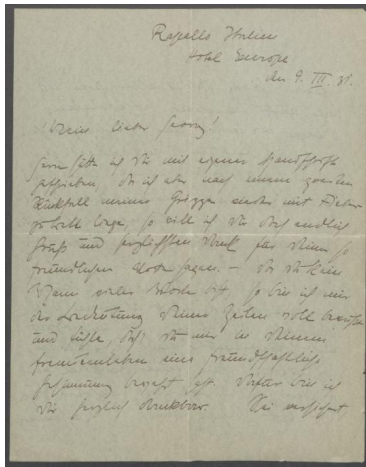 Rapallo Italien
Hotel Europe
den 9. III. 31.
Mein lieber Georg!
Gern hätte ich Dir mit eigener Handschrift
geschrieben. Da ich aber nach einem zweiten
Rückfall meiner Grippe wieder mit Fieber
zu Bett liege, so will ich Dir doch endlich
Gruß und herzlichsten Dank für Deine so
freundlichen Worte sagen. – Da Du kein
Mann vieler Worte bist, so bin ich mir
der Bedeutung Deiner Zeilen voll bewußt
und fühle, daß Du mir in Deinem
eine freundschaftliche
Gesinnung bewahrt hast. Dafür bin ich
Dir herzlich dankbar. Sei versichert,